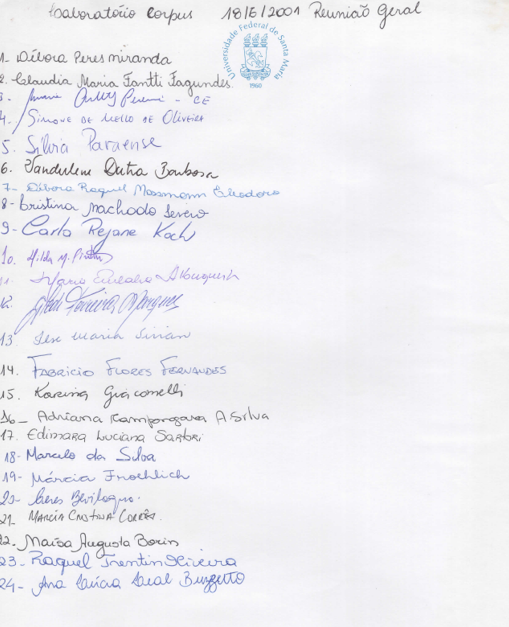 Laboratório Corpus 18/6/2001 Reunião Geral
Universidade Federal de Santa Maria
1960
1- Débora Peres Miranda
2. Claudia Maria Fagundes
3. - CE
4. Simone de Mello de Oliveira
5. Silvia Paraense
6. Dutra Barbosa
7- Débora Raquel Massmann Eleodoro
8- Cristina Machado Severo
9- Carla Rejane Koch
10. Hilda M.
11. Albuquerque
12. Ferreira Marques
13 Maria
14. Fabricio Flores Fernandes
15. Karina Giacomelli
16- Adriana A Silva
17. Edimara Luciana Sartori
18- Marcelo da Silva
19- Márcia Froehlich
20- Ceres Bevilaqua.
21. Marcia Cristina Corrêa.
22- Maísa Augusta Borin
23- Raquel Trentin Oliveira
24- Ana Lúcia